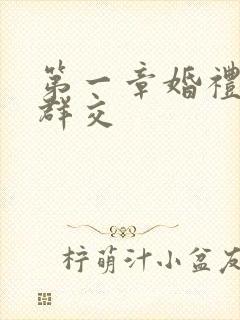 第一章婚禮
群交
柠萌汁小盆友